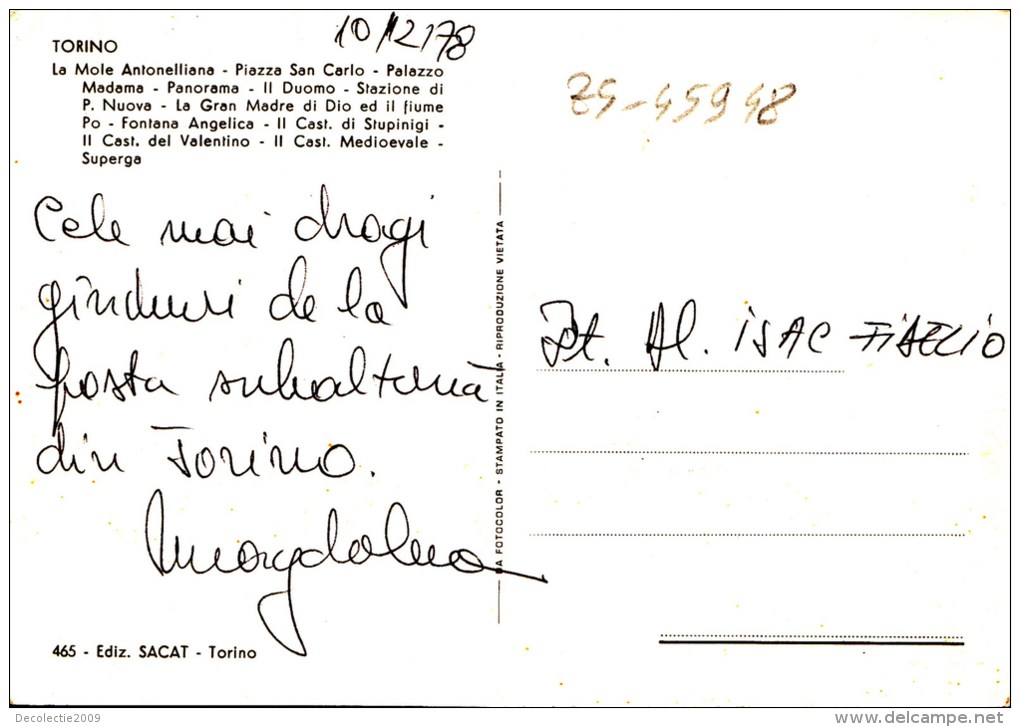 10/12/78
TORINO
La Mole Antonelliana - Piazza San Carlo - Palazzo
Madama - Panorama - Il Duomo - Stazione di
P. Nuova - La Gran Madre di Dio ed il fiume
Po - Fontana Angelica - Il Cast. di Stupinigi -
Il Cast. del Valentino - Il Cast. Medioevale -
Superga
Z4-45948
Cele mai dragi
gînduri de la
fosta subalternă
din Torino.
Magdalena
Pt. Al. ISAC
DA FOTOCOLOR - STAMPATO IN ITALIA - RIPRODUZIONE VIETATA
465 - Ediz. SACAT - Torino
Decolectie2009
www.delcampe.net